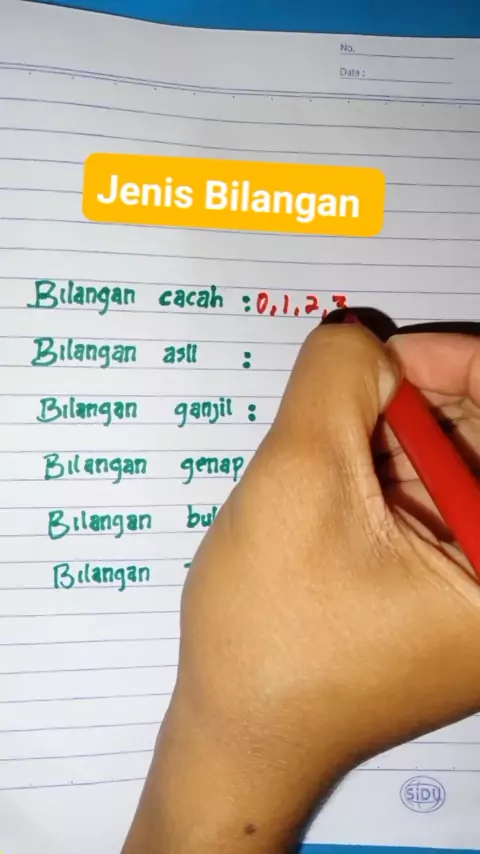 No.
Date :
Jenis Bilangan
Bilangan cacah : 0, 1, 2, 3
Bilangan asli :
Bilangan ganjil :
Bilangan genap
Bilangan
Bilangan
SIDU